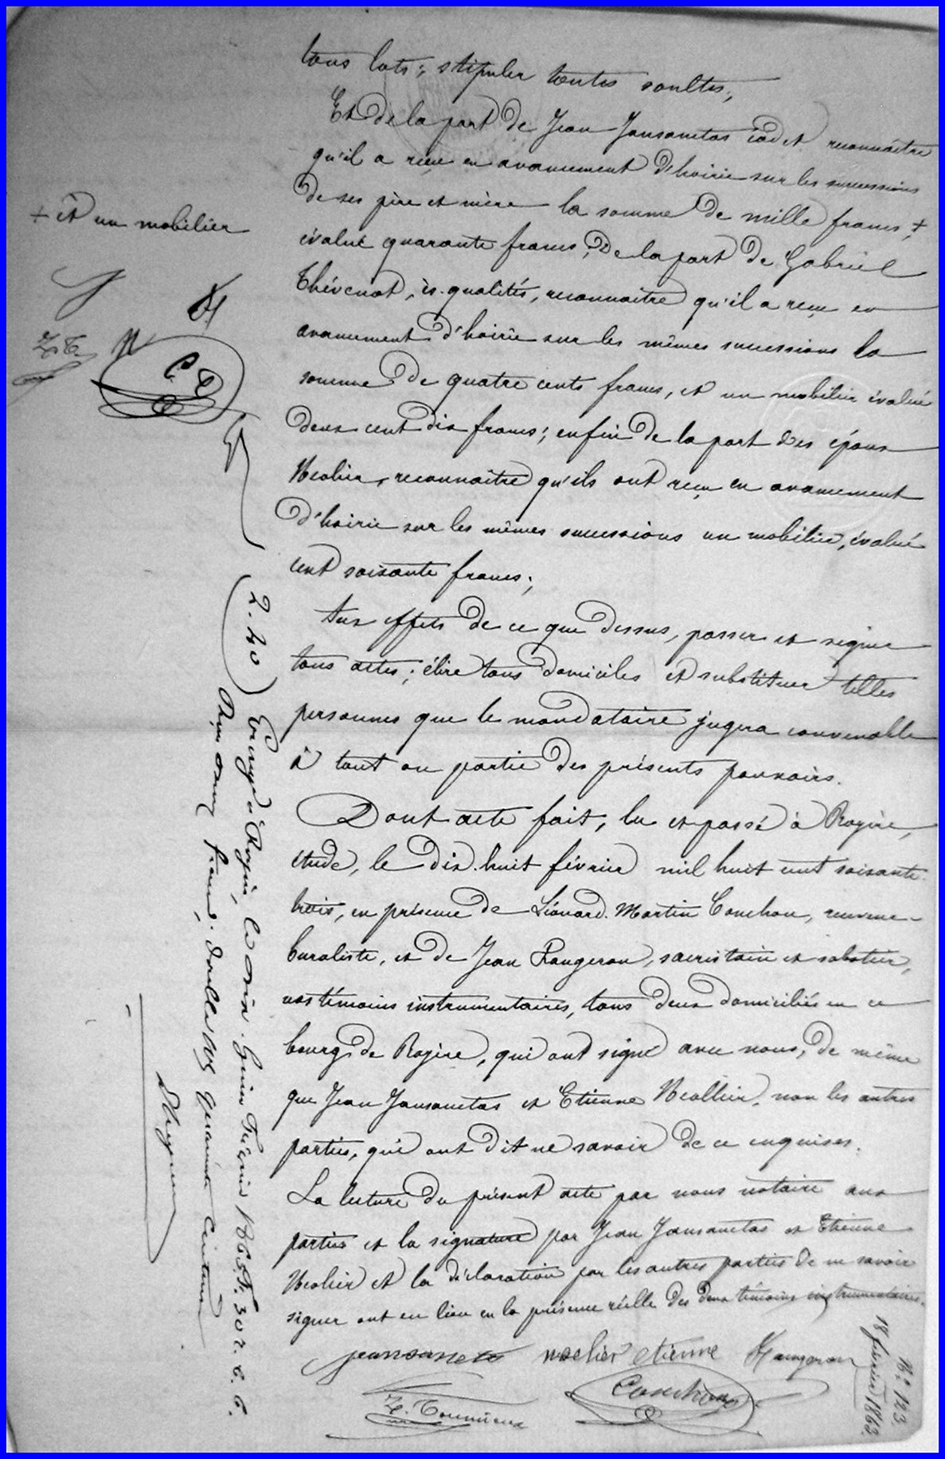 tous lots; stipuler toutes soultes;
Et de la part de Jean Jansanetas cadet reconnaître
qu'il a reçu en avancement d'hoirie sur les successions
de ses père et mère la somme de mille francs, +
+ et un mobilier
évalué quarante francs; De la part de Gabriel
Thévenot, ès-qualités, reconnaître qu'il a reçu en
avancement d'hoirie sur les mêmes successions la
somme de quatre cents francs, et un mobilier évalué
deux cent dix francs; enfin de la part des époux
reconnaître qu'ils ont reçu en avancement
d'hoirie sur les mêmes successions un mobilier, évalué
cent soixante francs;
Aux effets de ce que dessus, passer et signer
tous actes; élire tous domiciles et substituer telles
personnes que le mandataire jugera convenable
à tout ou partie des présents pouvoirs.
Dont acte fait, lu et passé à Royère,
étude, le dix-huit février mil huit cent soixante-
trois, en présence de Léonard Martin Couchon, receveur-
buraliste, et de Jean Rangeron, sacristain et sabotier,
nos témoins instrumentaires, tous deux domiciliés en ce
bourg de Royère, qui ont signé avec nous, de même
que Jean Jansanetas et Etienne non les autres
parties, qui ont dit ne savoir de ce enquises.
La lecture du présent acte par nous notaire aux
parties et la signature par Jean Jansanetas et Etienne
et la déclaration par les autres parties de ne savoir
signer ont eu lieu en la présence réelle des deux témoins instrumentaires.
etienne
Couchon
2.40
Enreg. à Royère, le
Reçu francs, double quarante centimes
N° 123
18 février 1863